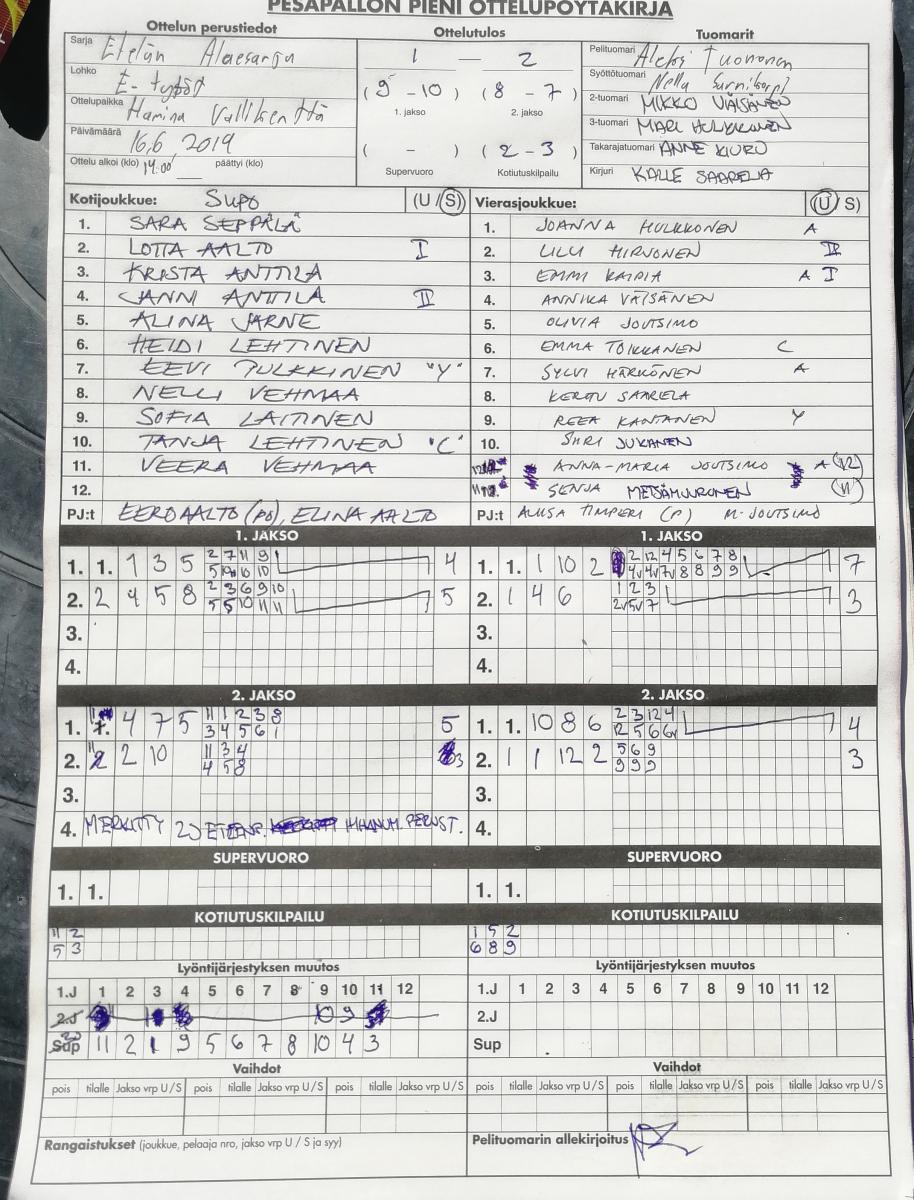 PESÄPALLON PIENI OTTELUPÖYTÄKIRJA
Ottelun perustiedot Ottelutulos Tuomarit
Sarja Etelän Aluesarja
Lohko E-tytöt
Ottelupaikka Hamina Vallikenttä
Päivämäärä 16.6 2019
Ottelu alkoi (klo) 14:00 päättyi (klo)
1 — 2
(9 - 10) (8 - 7)
1. jakso 2. jakso
( - ) (2 - 3)
Supervuoro Kotiutuskilpailu
Pelituomari Aleksi Tuononen
Syöttötuomari Nella
2-tuomari MIKKO VÄISÄNEN
3-tuomari MARI HULKKONEN
Takarajatuomari ANNE KIURU
Kirjuri KALLE SAARELA
Kotijoukkue: SuPo (U / S)
1. SARA SEPPÄLÄ
2. LOTTA AALTO I
3. KRISTA ANTTILA
4. JANNI ANTTILA II
5. ALINA JARNE
6. HEIDI LEHTINEN
7. EEVI PULKKINEN "Y"
8. NELLI VEHMAA
9. SOFIA LAITINEN
10. TANJA LEHTINEN "C"
11. VEERA VEHMAA
12.
PJ:t EERO AALTO (PJ), ELINA AALTO
Vierasjoukkue: (U / S)
1. JOANNA HULKKONEN A
2. LILU HIRVONEN II
3. EMMI KAIPIA A I
4. ANNIKA VÄISÄNEN
5. OLIVIA JOUTSIMO
6. EMMA TOIKKANEN C
7. SYLVI HÄRKÖNEN A
8. KERTTU SAARELA
9. REEA KANTANEN Y
10. SIIRI JUKANEN
ANNA-MARIA JOUTSIMO A (12)
SENJA METSÄMUURONEN (11)
PJ:t ALIISA TIMPERI (P) M. JOUTSIMO
1. JAKSO 1. JAKSO
1. 1. 1 3 5 2 7 11 9 4
5 10 10 10
2. 2 4 5 8 2 3 6 9 10 5
5 5 10 11 11
3.
4.
1. 1. 1 10 2 2 12 4 5 6 7 8 7
4v 4v 7v 8 8 9 9
2. 1 4 6 1 2 3 3
2v 5v 7
3.
4.
2. JAKSO 2. JAKSO
1. 4 7 5 11 1 2 3 8 5
3 4 5 6 1
2. 2 10 11 3 4 3
4 5 8
3.
4. MERKITTY 2J ETENP. IHANUM. PERUST.
1. 1. 10 8 6 2 3 12 4 4
12 5 6 6v
2. 1 1 12 2 5 6 9 3
9 9 9
3.
4.
SUPERVUORO SUPERVUORO
1. 1. 1. 1.
KOTIUTUSKILPAILU KOTIUTUSKILPAILU
11 2
5 3
1 5 2
6 8 9
Lyöntijärjestyksen muutos Lyöntijärjestyksen muutos
1.J 1 2 3 4 5 6 7 8 9 10 11 12
2.J 10 9
Sup 2J 11 2 1 9 5 6 7 8 10 4 3
1.J 1 2 3 4 5 6 7 8 9 10 11 12
2.J
Sup
Vaihdot Vaihdot
pois tilalle Jakso vrp U / S pois tilalle Jakso vrp U / S pois tilalle Jakso vrp U / S
pois tilalle Jakso vrp U / S pois tilalle Jakso vrp U / S pois tilalle Jakso vrp U / S
Rangaistukset (joukkue, pelaaja nro, jakso vrp U / S ja syy)
Pelituomarin allekirjoitus